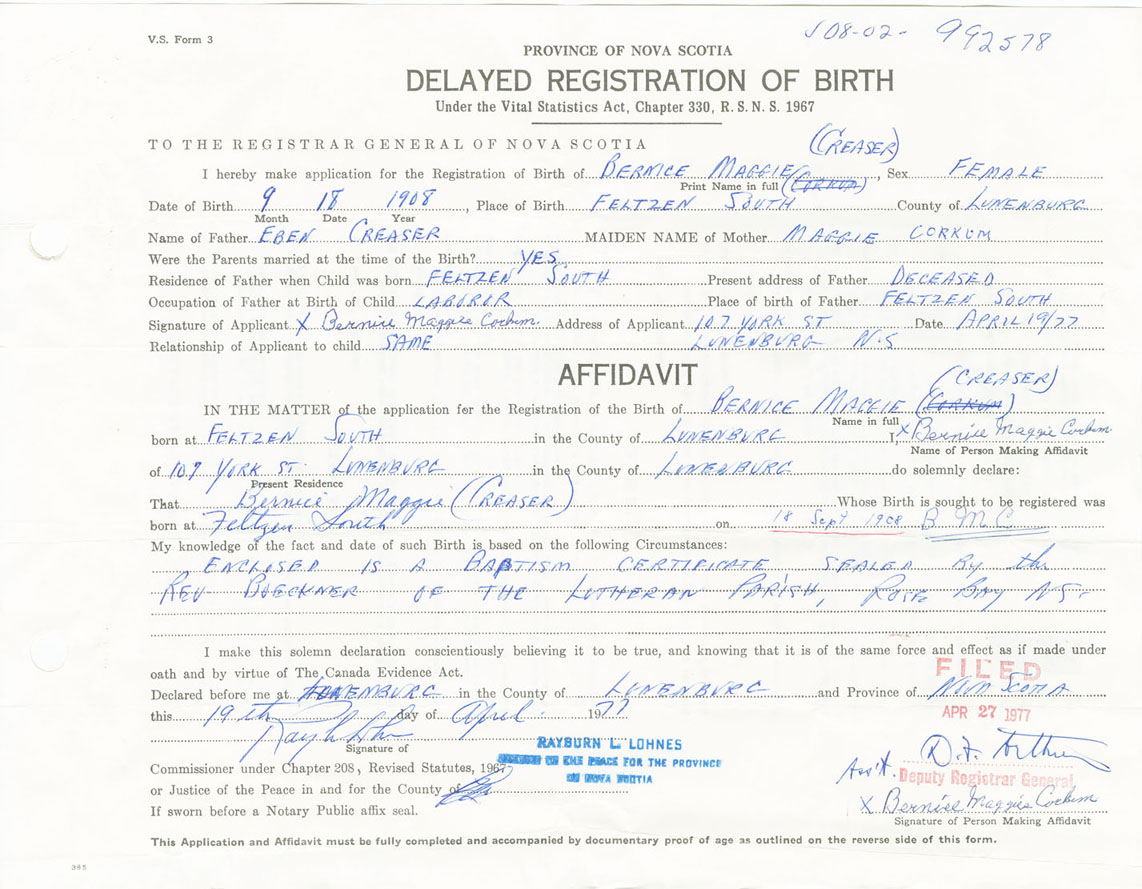 V.S. Form 3
J08-02- 992578
PROVINCE OF NOVA SCOTIA
DELAYED REGISTRATION OF BIRTH
Under the Vital Statistics Act, Chapter 330, R. S. N. S. 1967
TO THE REGISTRAR GENERAL OF NOVA SCOTIA (CREASER)
I hereby make application for the Registration of Birth of BERNICE MAGGIE (CORKUM), Sex FEMALE
Print Name in full
Date of Birth 9 18 1908, Place of Birth FELTZEN SOUTH County of LUNENBURG
Month Date Year
Name of Father EBEN CREASER MAIDEN NAME of Mother MAGGIE CORKUM
Were the Parents married at the time of the Birth? YES
Residence of Father when Child was born FELTZEN SOUTH Present address of Father DECEASED
Occupation of Father at Birth of Child LABOROR Place of birth of Father FELTZEN SOUTH
Signature of Applicant X Bernice Maggie Corkum Address of Applicant 107 YORK ST Date APRIL 19/77
Relationship of Applicant to child SAME LUNENBURG N.S
AFFIDAVIT
(CREASER)
IN THE MATTER of the application for the Registration of the Birth of BERNICE MAGGIE (CORKUM)
Name in full
born at FELTZEN SOUTH in the County of LUNENBURG I, X Bernice Maggie Corkum
Name of Person Making Affidavit
of 107 YORK ST. LUNENBURG in the County of LUNENBURG do solemnly declare:
Present Residence
That Bernice Maggie (CREASER) Whose Birth is sought to be registered was
born at Feltzen South on 18 Sept 1908 B M C
My knowledge of the fact and date of such Birth is based on the following Circumstances:
ENCLOSED IS A BAPTISM CERTIFICATE SEALED By the
REV BOECKNER OF THE LUTHERAN PARISH, ROSE BAY NS.
I make this solemn declaration conscientiously believing it to be true, and knowing that it is of the same force and effect as if made under
oath and by virtue of The Canada Evidence Act.
FILED
Declared before me at LUNENBURG in the County of LUNENBURG and Province of NOVA SCOTIA
this 19th day of April 1977
APR 27 1977
Signature of
RAYBURN L. LOHNES
Commissioner under Chapter 208, Revised Statutes, 1967
OF THE PEACE FOR THE PROVINCE
OF NOVA SCOTIA
Ass't. Deputy Registrar General
or Justice of the Peace in and for the County of
X Bernice Maggie Corkum
If sworn before a Notary Public affix seal.
Signature of Person Making Affidavit
This Application and Affidavit must be fully completed and accompanied by documentary proof of age as outlined on the reverse side of this form.
385